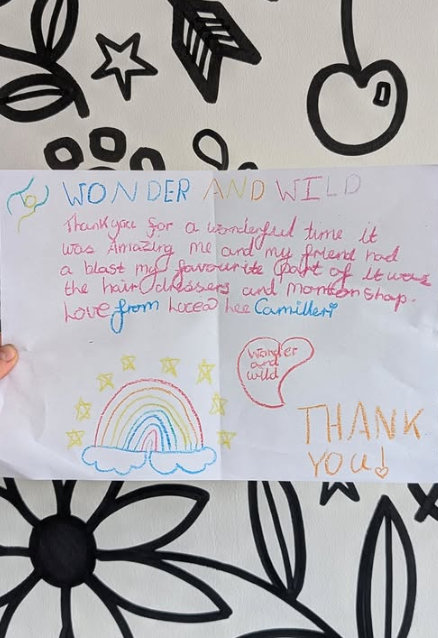 WONDER AND WILD
Thank you for a wonderful time it
was Amazing me and my friend had
a blast my favourite part of it was
the hair dressers and shop.
Love from Lee Camilleri
Wonder
and
wild
THANK
YOU!